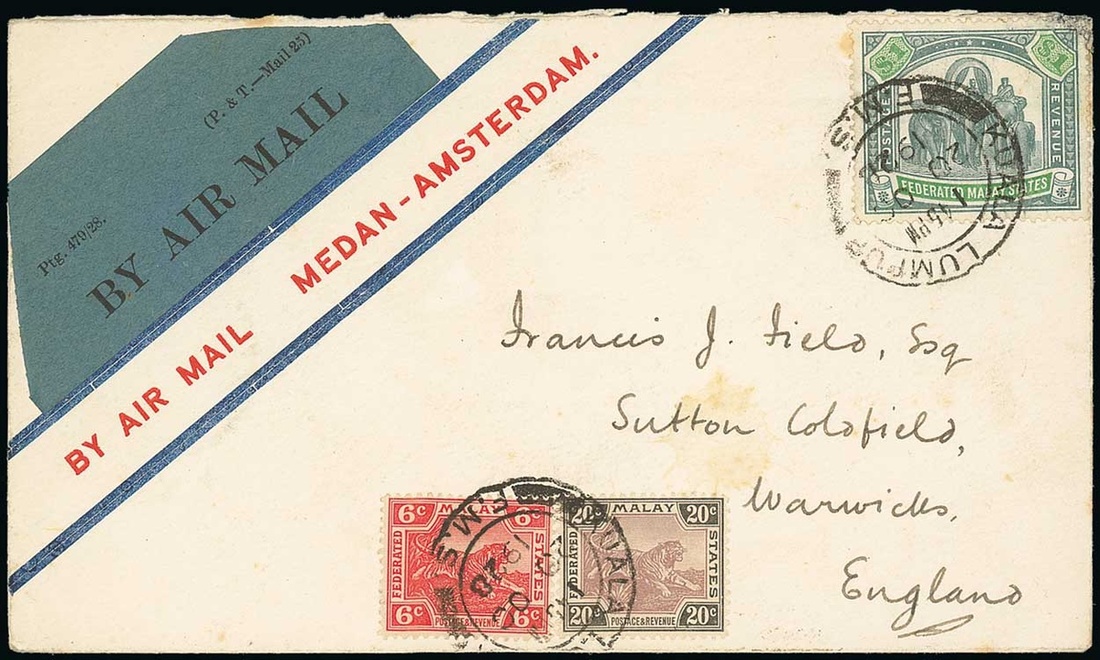 (P. & T.—Mail 25)
BY AIR MAIL
Ptg. 479/28.
BY AIR MAIL MEDAN - AMSTERDAM.
$1 $1
POSTAGE REVENUE
FEDERATED MALAY STATES
KUALA LUMPUR
F.M.S
1 45 PM
19
Francis J. Field, Esq
Sutton Coldfield,
Warwicks,
England
6c MALAY 6c
FEDERATED STATES
6c POSTAGE & REVENUE 6c
20c MALAY 20c
FEDERATED STATES
20c POSTAGE & REVENUE 20c
KUALA
F.M.S
1928